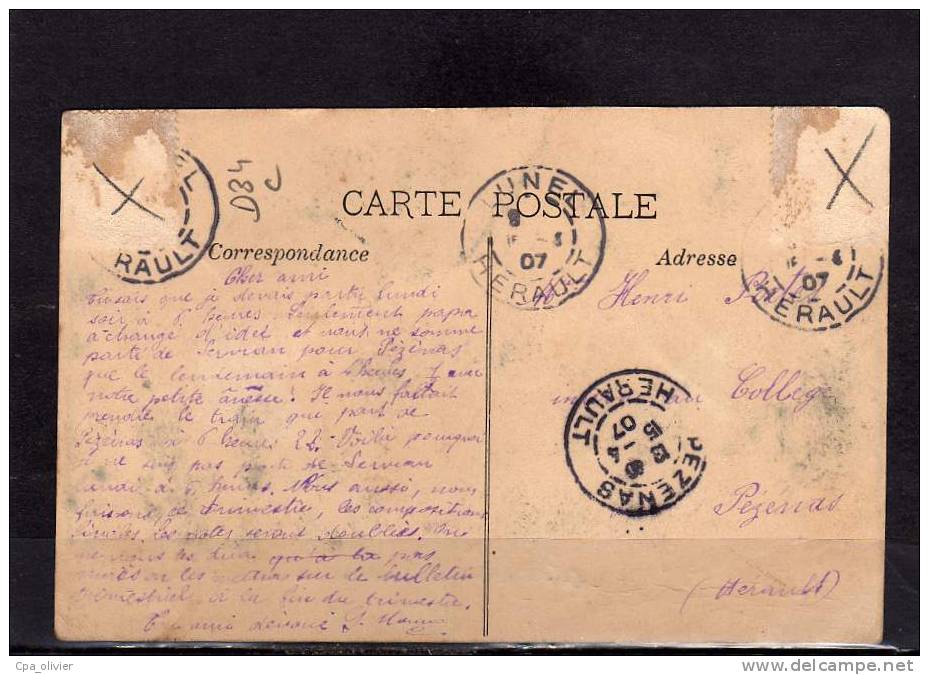 D34
CARTE POSTALE
LUNEL
07
HERAULT
RAULT
Correspondance
Adresse
07
HERAULT
Cher ami
que je devais partir lundi
soir à 5 heures Seulement papa
a changé d'idée et nous ne sommes
partis de Servian pour Pézénas
que le lendemain à 4 heures avec
notre petite ânesse. Il nous fallait
prendre le train qui part de
Pézenas à 6 heures 22. Voilà pourquoi
je ne suis pas parti de Servian
lundi à 5 heures. Nous aussi, nous
faisons ce trimestre, les compositions
les notes seront doublées. On
pas
les mettra sur le bulletin
trimestriel à la fin du trimestre.
Ton ami dévoué
Henri
au Collège
Pézenas
(Hérault)
PEZENAS
07
HERAULT
Cpa_olivier
www.delcampe.net